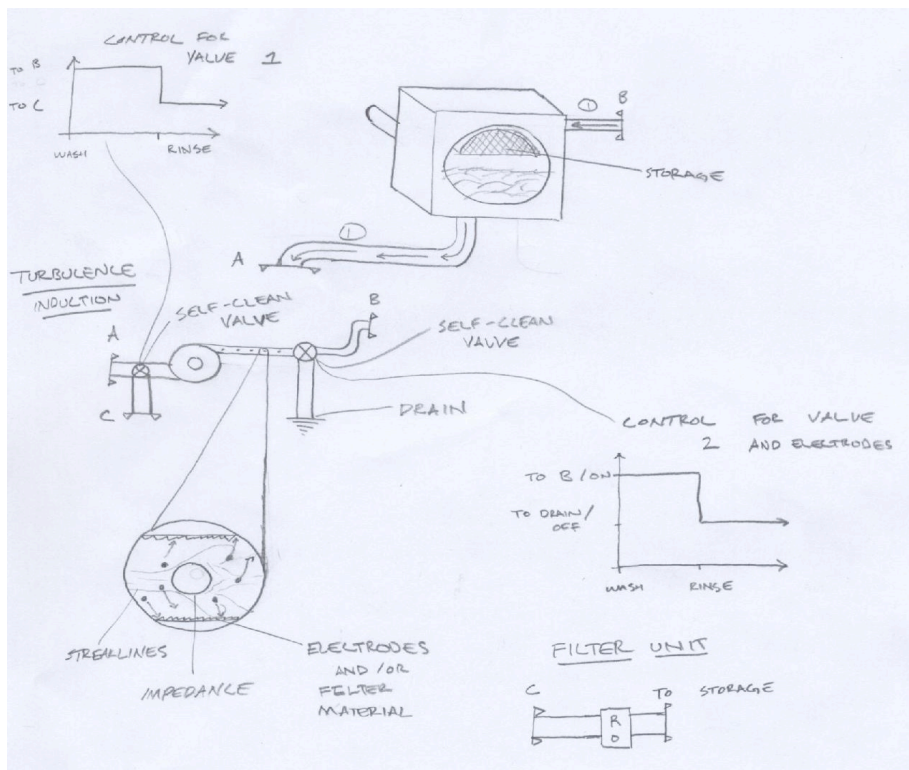 CONTROL FOR
VALVE 1
TO B
TO C
WASH
RINSE
①
B
STORAGE
①
A
TURBULENCE
INDUCTION
SELF-CLEAN
VALVE
A
B
SELF-CLEAN
VALVE
C
DRAIN
CONTROL FOR VALVE
2 AND ELECTRODES
TO B/ON
TO DRAIN/
OFF
WASH
RINSE
STREAMLINES
IMPEDANCE
ELECTRODES
AND/OR
FILTER
MATERIAL
FILTER UNIT
C
TO STORAGE
R
O